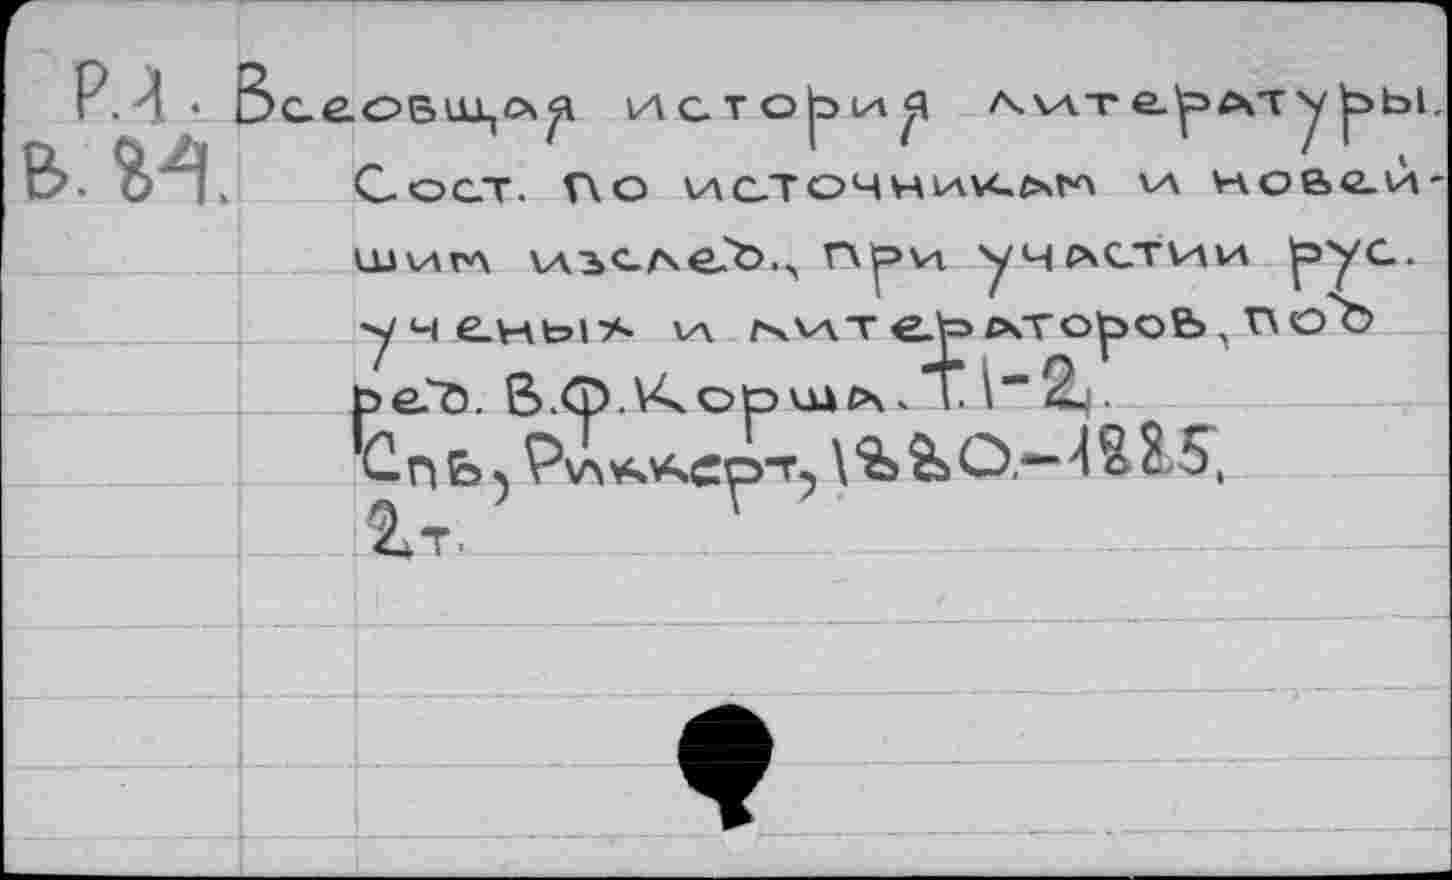 Р.1. Всеовщая история литературы.
В.84. Сост. по источникам и новей-
шим изслед., при участии рус.
ученых и литераторов, под
ред. В.Ф.Корша. Т.1-2.
Спб, Риккерт, 1880.-1885,
2т.